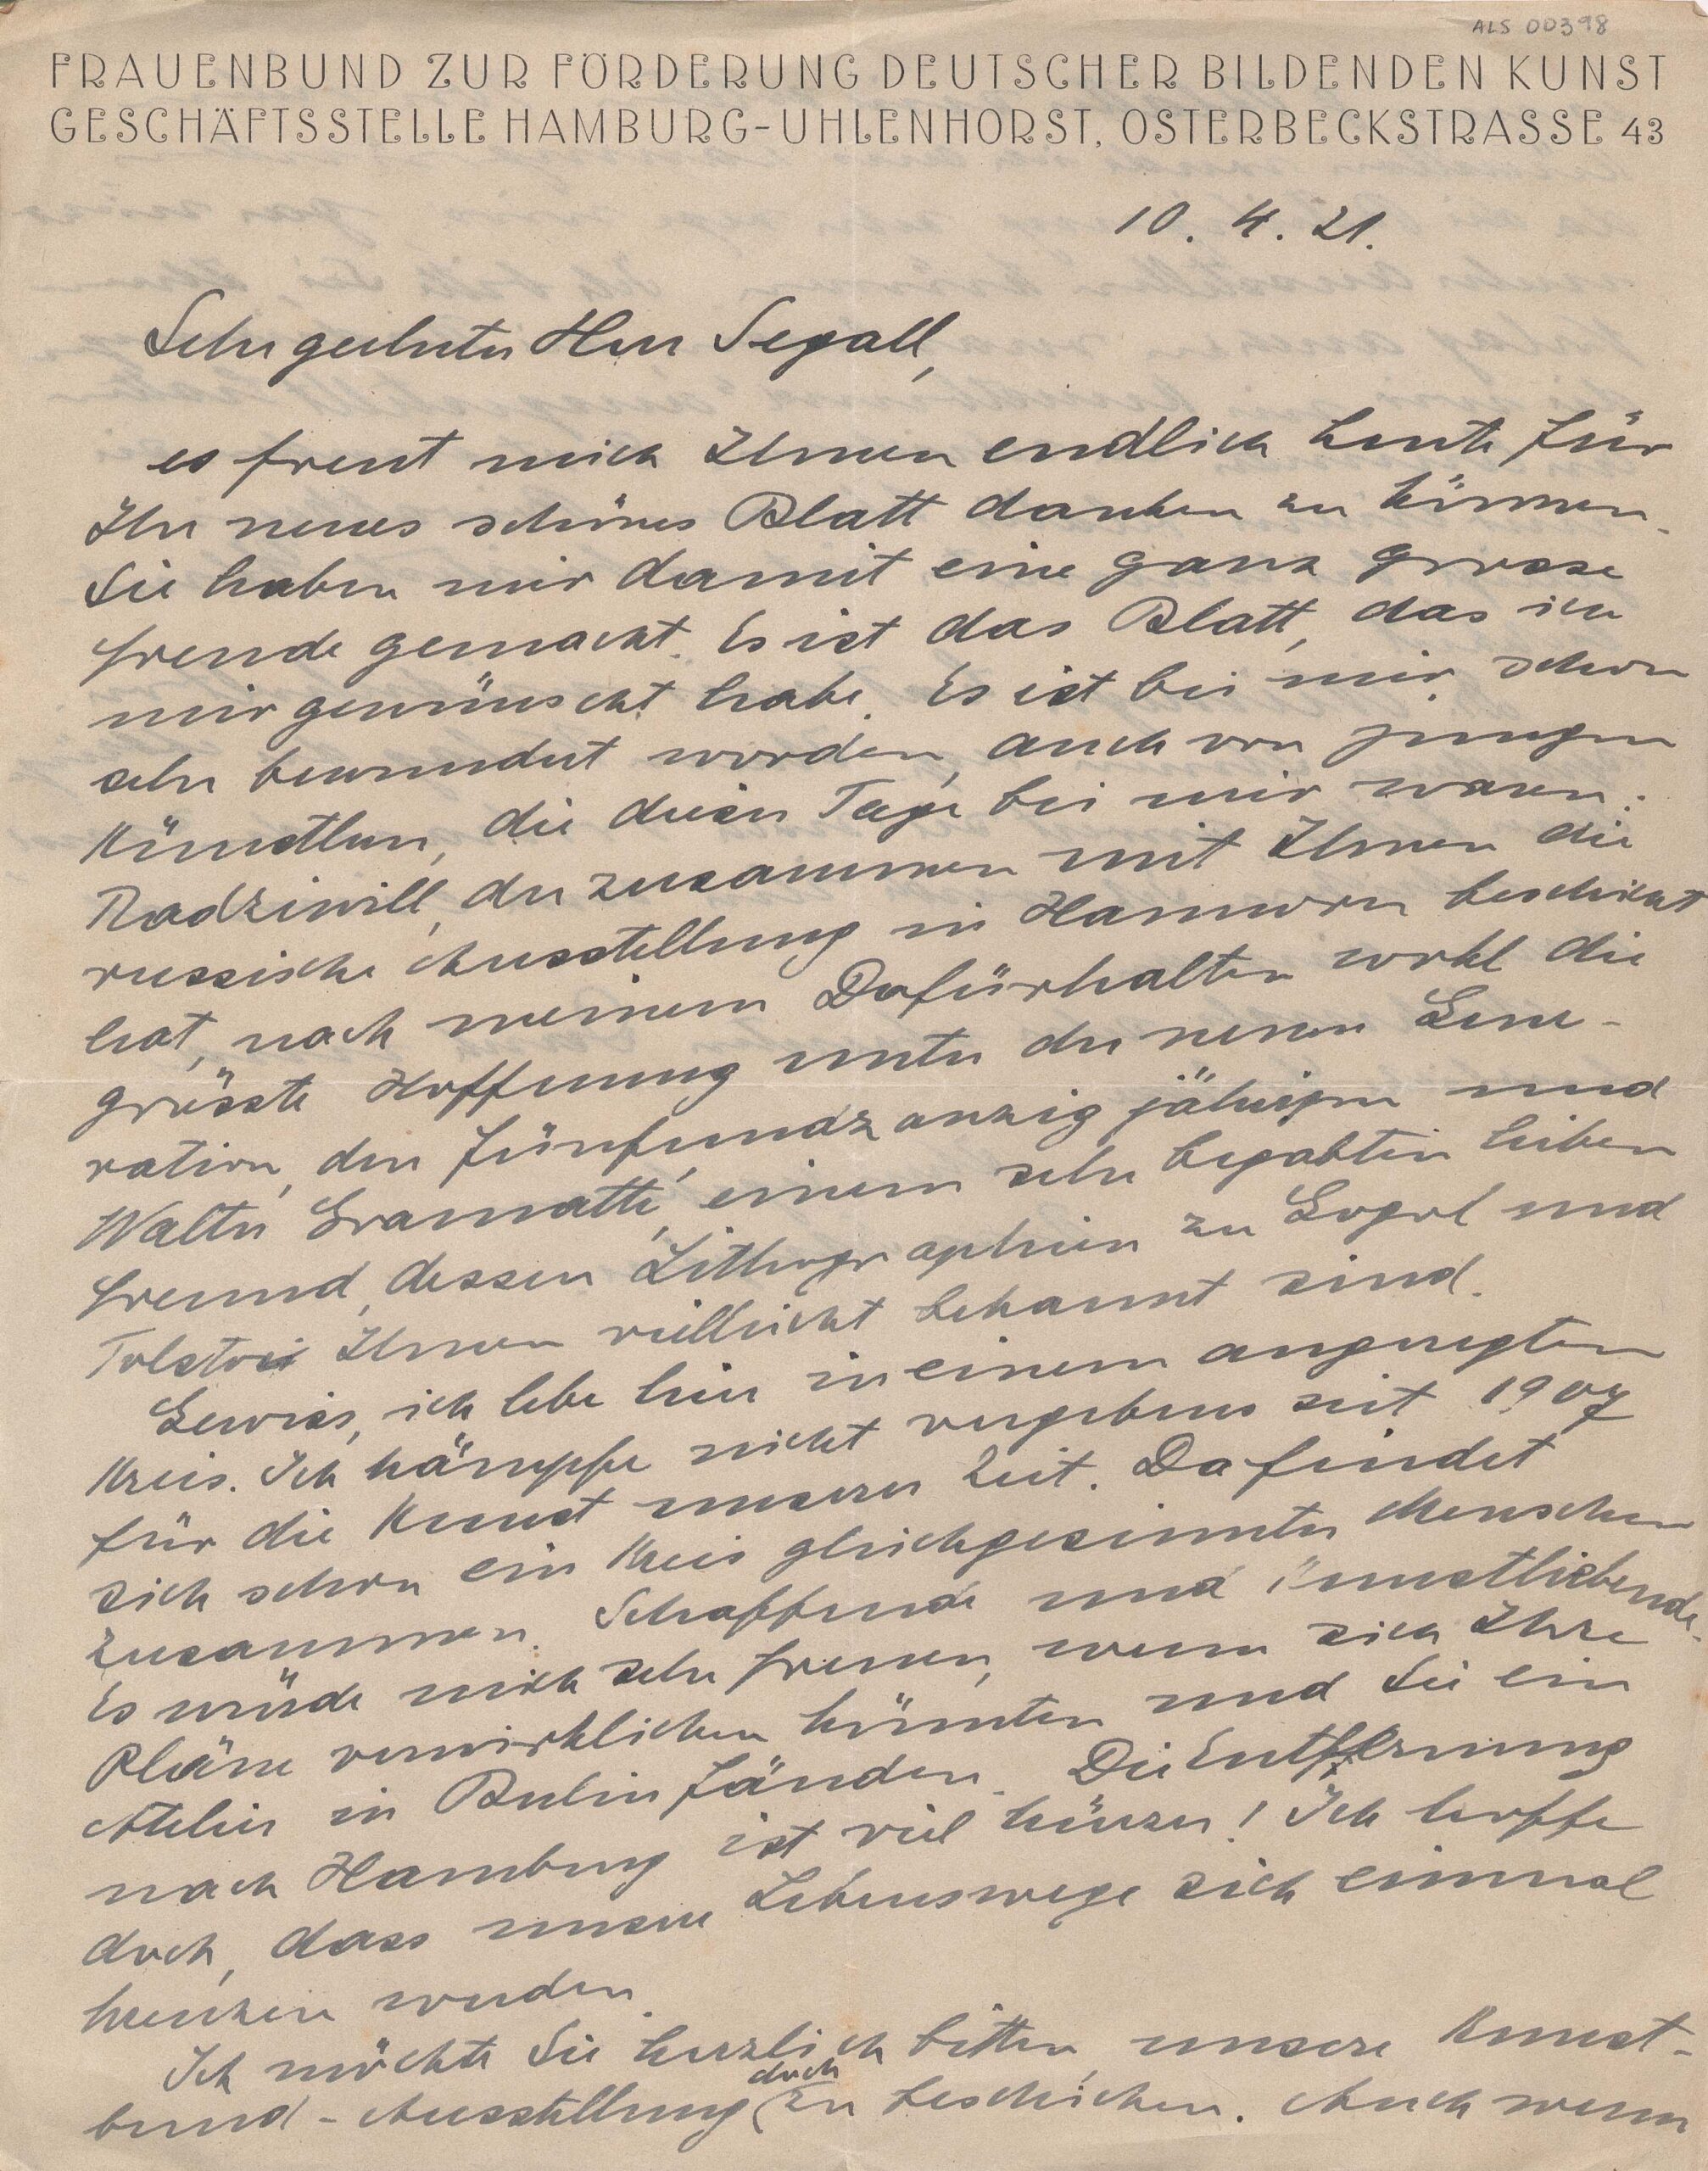 ALS 00398
FRAUENBUND ZUR FÖRDERUNG DEUTSCHER BILDENDEN KUNST
GESCHÄFTSSTELLE HAMBURG-UHLENHORST, OSTERBECKSTRASSE 43
10. 4. 21.
Sehr geehrter Herr Segall,
es freut mich Ihnen endlich heute für
Ihr neues schönes Blatt danken zu können.
Sie haben mir damit eine ganz grosse
Freude gemacht. Es ist das Blatt, das ich
mir gewünscht habe. Es ist bei mir schon
sehr bewundert worden, auch von jungen
Künstlern, die dieser Tage bei mir waren:
Radziwill, der zusammen mit Ihnen die
russische Ausstellung in Hannover beschickt
hat, nach meinem Dafürhalten wohl die
grösste Hoffnung unter der neuen Gene-
ration, den fünfundzwanzig jährigen und
Walter Gramatté, einem sehr begabten lieben
Freund, dessen Lithographien zu Gogol und
Tolstoi Ihnen vielleicht bekannt sind.
Gewiss, ich lebe hier in einem angeregten
Kreis. Ich kämpfe nicht vergebens seit 1907
für die Kunst unserer Zeit. Da findet
sich schon ein Kreis gleichgesinnter Menschen
zusammen. Schaffende und Kunstliebende.
Es würde mich sehr freuen, wenn sich Ihre
Pläne verwirklichen könnten und Sie ein
Atelier in Berlin fänden. Die Entfernung
nach Hamburg ist viel kürzer! Ich hoffe
doch, dass unsere Lebenswege sich einmal
kreuzen werden.
Ich möchte Sie herzlich bitten unsere Kunst-
bund-Ausstellung doch zu beschicken. Auch wenn